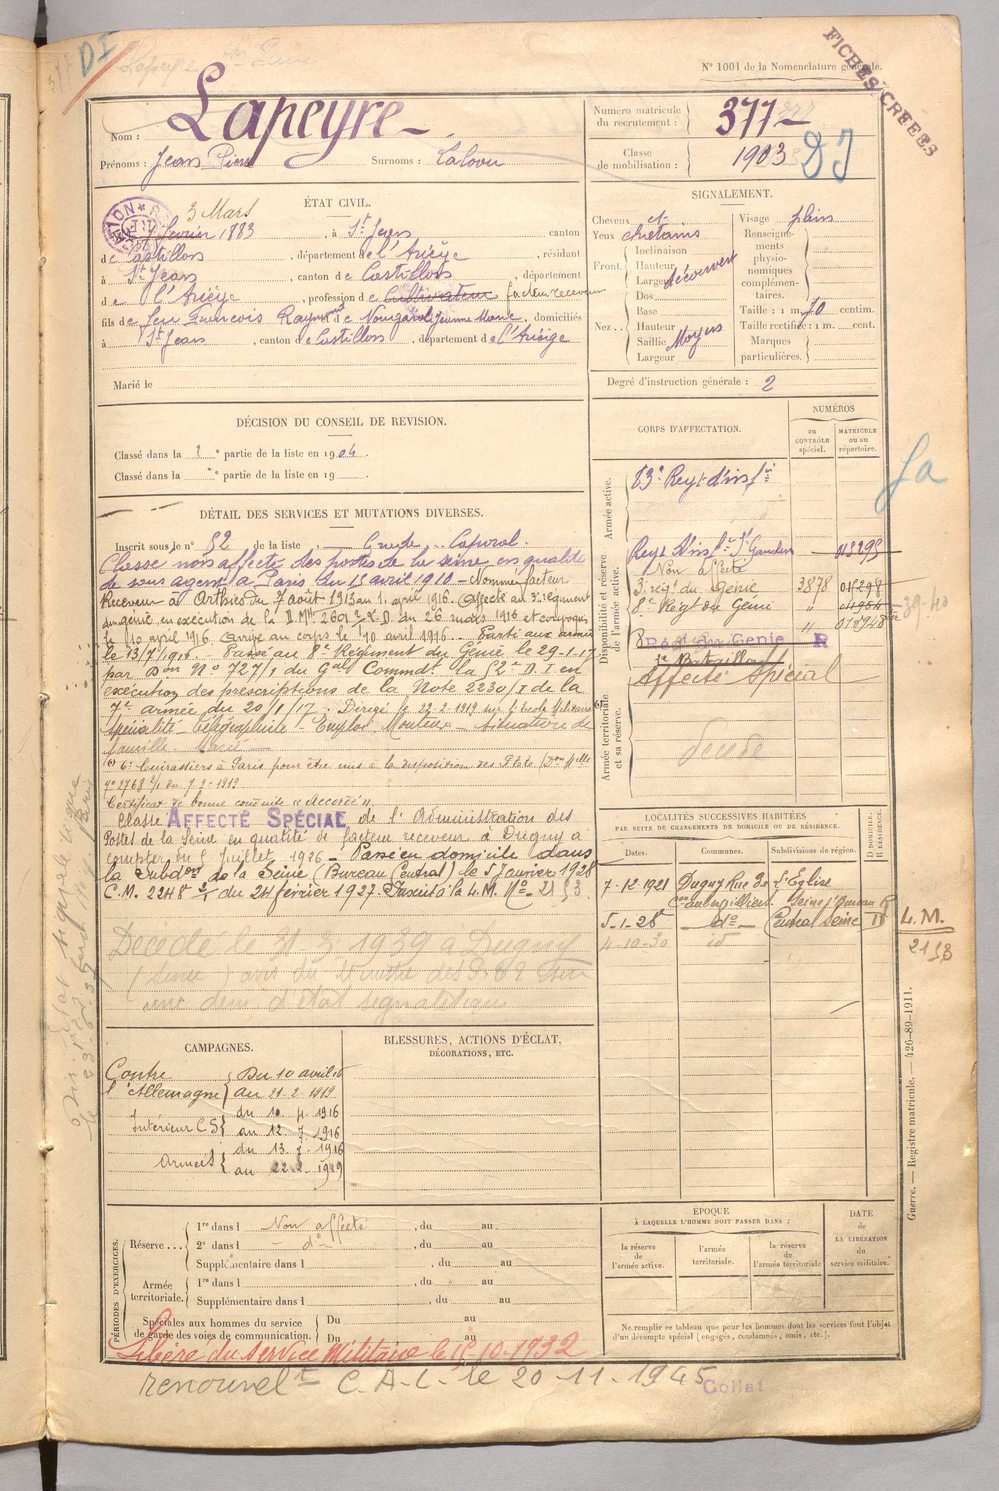 DI
N° 1001 de la Nomenclature générale.
FICHES CREEES
Nom : Lapeyre
Prénoms : Jean Pierre Surnoms :
Numéro matricule du recrutement : 377
Classe de mobilisation : 1903
DI
ÉTAT CIVIL.
3 Mars
février 1883, à St Jean canton
de Castillon, département de l'Ariège, résidant
à St Jean, canton de Castillon, département
de l'Ariège, profession de Cultivateur facteur receveur
fils de feu François Raymond et de Nougarol Jeanne Marie, domiciliés
à St Jean, canton de Castillon, département de l'Ariège
Marié le
SIGNALEMENT.
Cheveux et
Yeux chatains
Front. Inclinaison
Hauteur
Largeur
découvert
Nez. Dos
Base
Hauteur
Saillie
Largeur
Moyens
Visage plein
Renseignements physionomiques complémentaires.
Taille : 1 m. 70 centim.
Taille rectifiée : 1 m. cent.
Marques particulières.
Degré d'instruction générale : 2
DÉCISION DU CONSEIL DE REVISION.
Classé dans la 1e partie de la liste en 1904.
Classé dans la e partie de la liste en 19
CORPS D'AFFECTATION.
NUMÉROS
au CONTRÔLE spécial.
MATRICULE ou au répertoire.
Armée active.
83e Regt d'infie
Disponibilité et réserve de l'armée active.
Regt d'infie St Gaudens
Non affecté
3e régt du génie 3878
8e Régt du Génie
8 Rég. du Genie R
Affecté Spécial
39-40
Armée territoriale et sa réserve.
décédé
DÉTAIL DES SERVICES ET MUTATIONS DIVERSES.
Inscrit sous le n° 52 de la liste
Caporal.
Classé non affecté des postes de la Seine en qualité
de sous agent à Paris du 15 avril 1910 - Nommé facteur
Receveur à Orthies du 7 août 1913 au 1. avril 1916. Affecté au 3e régiment
du génie, en exécution de la D. Mlle du 26 mars 1916 et convoqué
le 10 avril 1916. Arrivé au corps le 10 avril 1916. Parti aux armées
le 13/7/1916. Passé au 8e Régiment du Génie le 29-1-17
par Don N° 727/1 du Gal Commdt la 52e D.I en
exécution des prescriptions de la Note 2230/I de la
7e armée du 20/1/17. Dirigé le 22-2-1919 sur l'école Militaire
Spécialité télégraphiste Emploi Monteur Situation de
famille Marié
(1) 6e Cuirassiers à Paris pour être mis à la disposition des
n° 2768 2/1 du 7-2-1919
Certificat de bonne conduite "Accordé".
Classé AFFECTÉ SPÉCIAL de l'Administration des
Postes de la Seine en qualité de facteur receveur à Dugny à
compter du 5 Juillet 1926 - Passé en domicile dans
la Subdon de la Seine (Bureau Central) le 5 Janvier 1928
C.M. 2248 du 24 février 1927. Inscrit à la L.M. N° 2153.
Décédé le 31-3-1939 à Dugny
(Seine) avis du
une dem. d'état signalétique
LOCALITÉS SUCCESSIVES HABITÉES
PAR SUITE DE CHANGEMENTS DE DOMICILE OU DE RÉSIDENCE.
Dates. Communes. Subdivisions de région. D DOMICILE. R RÉSIDENCE.
7-12-1921 Dugny Rue de l'Eglise
con Aubervilliers Seine R
5-1-28 do Central Seine D
4-10-30 id
L.M.
2153
CAMPAGNES.
Contre l'Allemagne Du 10 avril 16
au 21-2-1919
Intérieur CS du 10. 4. 1916
au 12. 7. 1916
Armées du 13. 7. 1916
au 22-2-1919
BLESSURES, ACTIONS D'ÉCLAT,
DÉCORATIONS, ETC.
PÉRIODES D'EXERCICES.
Réserve ... 1re dans l Non affecté, du au
2e dans l do, du au
Supplémentaire dans l, du au
Armée territoriale. 1re dans l, du au
Supplémentaire dans l, du au
Spéciales aux hommes du service de garde des voies de communication. Du au
Du au
ÉPOQUE
À LAQUELLE L'HOMME DOIT PASSER DANS :
la réserve de l'armée active.
l'armée territoriale.
la réserve de l'armée territoriale
DATE de LA LIBÉRATION du service militaire.
Ne remplir ce tableau que pour les hommes dont les services font l'objet
d'un décompte spécial (engagés, condamnés, omis, etc.).
Guerre. — Registre matricule. — 426-89-1911.
Libéré du service Militaire le 15-10-1932
renouvelt C.A.L. le 20-11-1945